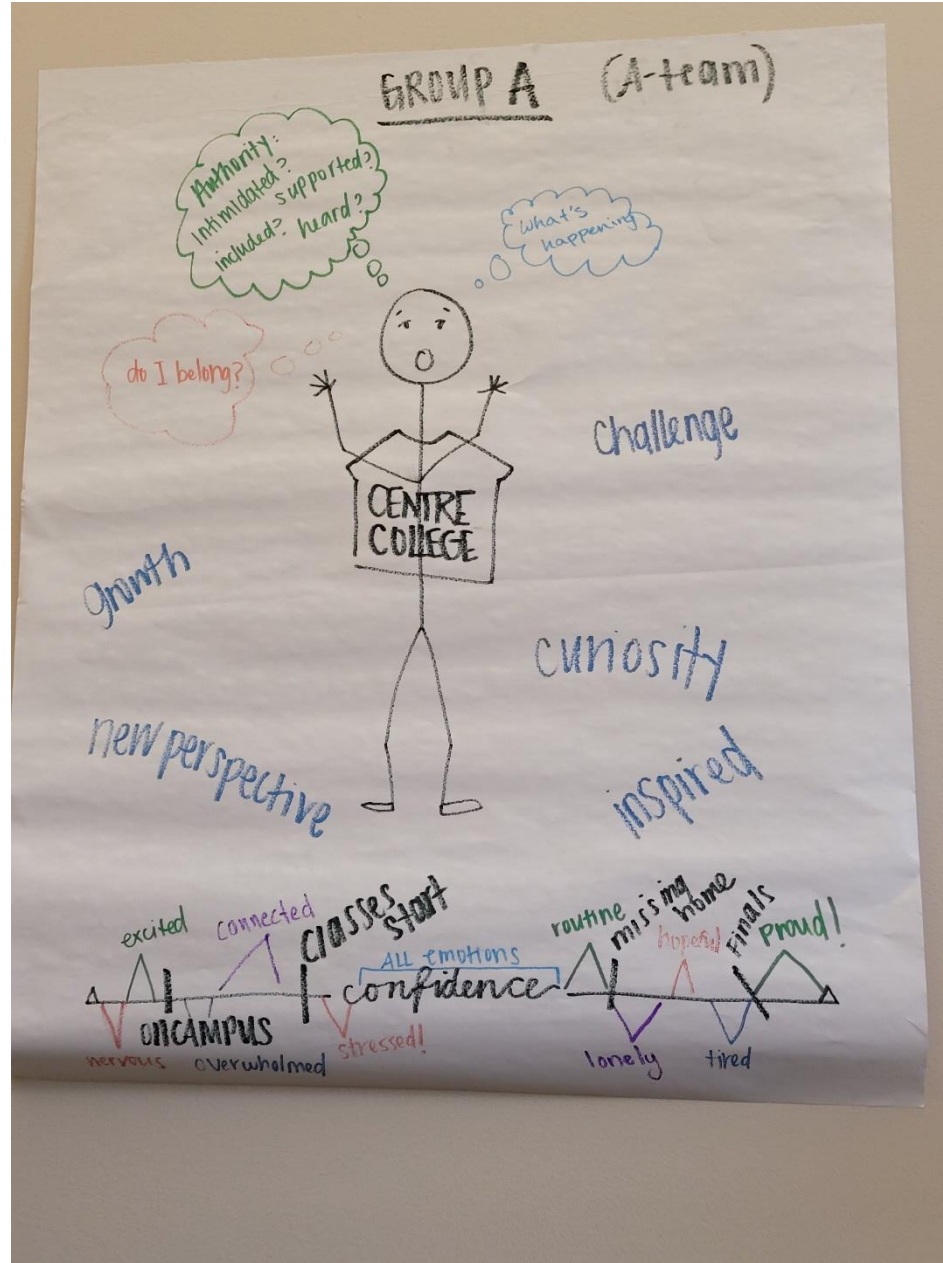 GROUP A (A-team)
Authority:
Intimidated? supported?
included? heard?
what's
happening
do I belong?
CENTRE
COLLEGE
challenge
growth
curiosity
new perspective
inspired
excited
connected
classes
start
ALL emotions
confidence
routine
missing
home
hopeful
Finals
proud!
nervous
ON CAMPUS
overwholmed
stressed!
lonely
tired